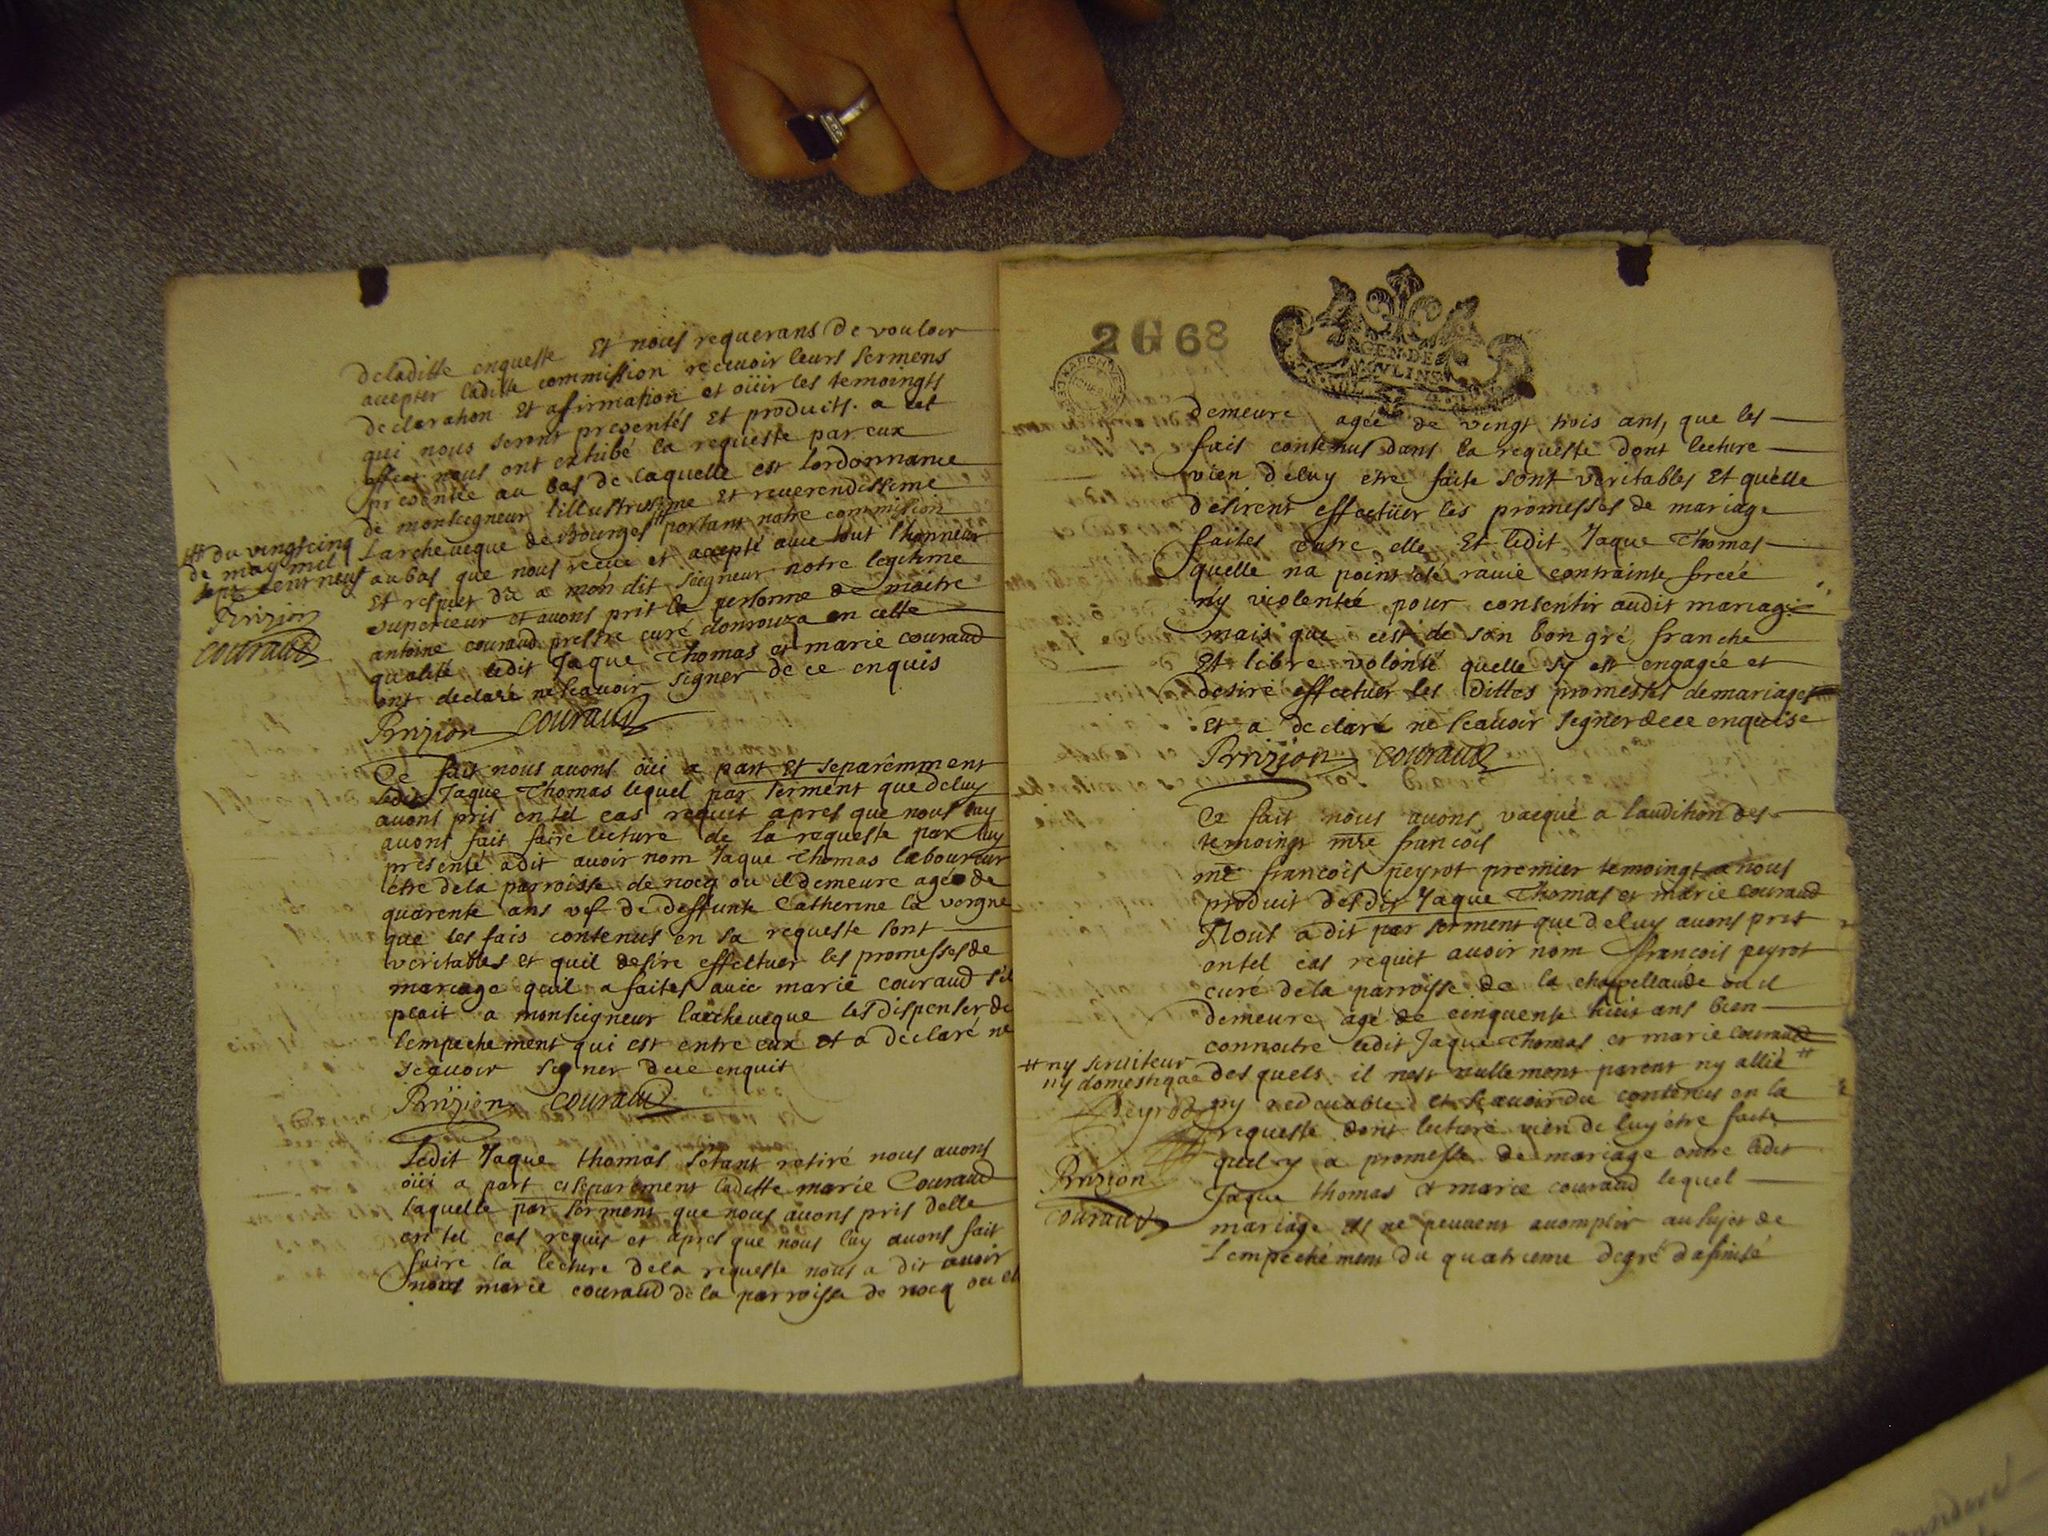 deladitte enqueste Et nous requerans de vouloir
accepter laditte commission recevoir leurs sermens
declaration Et afirmation et oüir les temoingts
qui nous seront presentés Et produits. a cet
effect nous ont exhibé la requeste par eux
presentée au bas de laquelle est lordonnance
de monseigneur lillustrissime Et reverendissime
Larcheveque de Bourges # portant notre commission
au bas que nous receue et accepté avec tout lhonneur
Et respect dû a mon dit seigneur notre legitime
superieur et avons prit la personne de maitre
antoine couraud prestre curé domrouza en cette
qualité ledit Jaque Thomas et marie couraud
ont declaré ne scavoir signer de ce enquis
Brizion couraud
## du vingt cinq
de may mil
sept cent neuf
Brizion
couraud
Ce fait nous avons oüi a part Et separêmment
ledit Jaque Thomas lequel par serment que deluy
avons pris en tel cas requit apres que nous luy
avons fait faire lecture de la requeste par luy
presenté adit avoir nom Jaque Thomas laboureur
être dela parroisse de nocq ou il demeure agé de
quarente ans vef de deffunte Catherine la vergne
que les fais contenus en sa requeste sont
veritables et quil desire effectuer les promesses de
mariage quil a faites avec marie couraud s'il
plait a monseigneur larcheveque les dispenser de
lempechement qui est entre eux et a declaré ne
scavoir signer dece enquit
Brizion couraud
Ledit Jaque thomas setant retiré nous avons
oüi a part et separement laditte marie Couraud
laquelle par serment que nous avons pris delle
en tel cas requis et apres que nous luy avons fait
faire la lecture dela requeste nous a dit avoir
nom marie couraud de la parroisse de nocq ou el
2 G 68
GEN. DE
MOVLINS
demeure agée de vingt trois ans, que les
fais contenus dans la requeste dont lecture
vien deluy etre faite sont veritables Et quelle
desirent effectüer les promesses de mariage
faites entre elle Et ledit Jaque Thomas
quelle na point eté ravie contrainte forcée
ny violentée pour consentir audit mariage
mais que cest de son bon gré franche
Et libre volonté quelle sy est engagée et
desire effectuer les dittes promesses de mariages
Et a declaré ne scavoir signer dece enquise
Brizion couraud
Ce fait nous avons vacqué a laudition des
temoingt mre francois
mre francois peyrot premier temoingt a nous
produit desdit Jaque Thomas et marie couraud
Nous a dit par serment que deluy avons prit
en tel cas requit avoir nom francois peyrot
curé dela parroisse de la chapellaude ou il
demeure agé de cinquente huit ans bien
connoitre ledit Jaque Thomas et marie couraud
des quels il nest nullement parent ny allié #
ny redevable et scavoir du contenus en la
requeste dont lecture vien de luy être faite
quil y a promesse de mariage entre ledit
Jaque thomas et marie couraud lequel
mariage ils ne peuvent accomplir au sujet de
Lempechement du quatrieme degré dafinité
# ny serviteur
ny domestique
Peyrot
Brizion
couraud